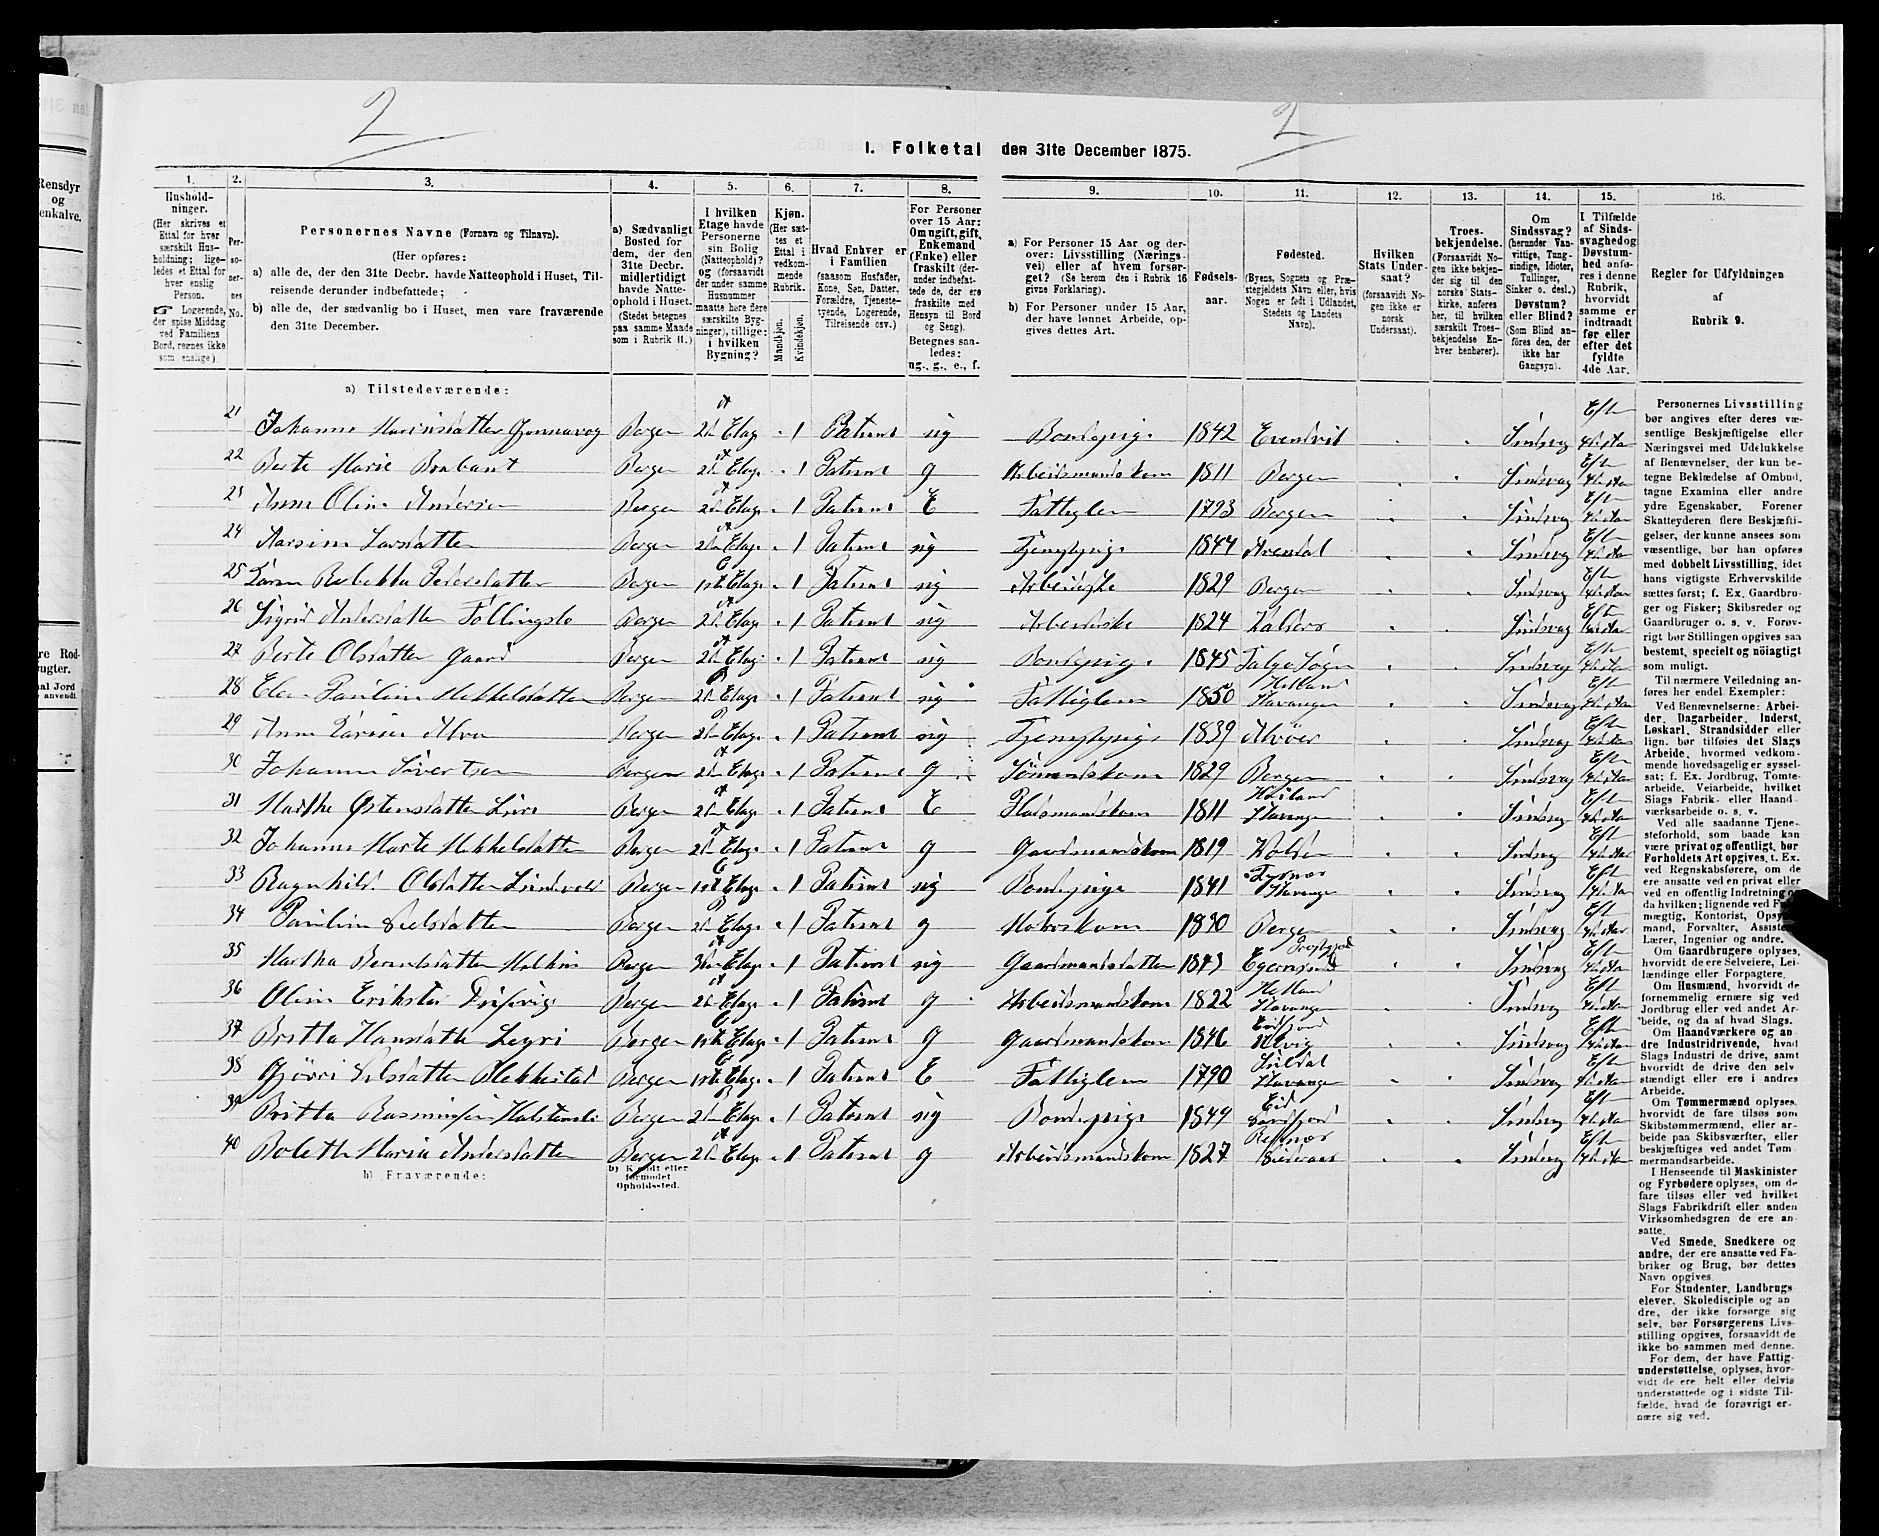 2 2
I. Folketal den 31te December 1875.
1. 2. 3. 4. 5. 6. 7. 8. 9. 10. 11. 12. 13. 14. 15. 16.
Hushold-
ninger.
(Her skrives et
Ettal for hver
særskilt Hus-
holdning; lige-
ledes et Ettal for
hver enslig
Person.
☞ Logerende,
der spise Middag
ved Familiens
Bord, regnes ikke
som enslige).
Per-
so-
ner-
nes
No.
Personernes Navne (Fornavn og Tilnavn).
(Her opføres:
a) alle de, der den 31te Decbr. havde Natteophold i Huset, Til-
reisende derunder indbefattede;
b) alle de, der sædvanlig bo i Huset, men vare fraværende
den 31te December.
a) Sædvanligt
Bosted for
dem, der den
31te Decbr.
midlertidigt
havde Natte-
ophold i Huset.
(Stedet betegnes
paa samme Maade
som i Rubrik 11.)
I hvilken
Etage havde
Personerne
sin Bolig
(Natteophold)?
og (forsaavidt
der under samme
Husnummer
maatte høre flere
særskilte Byg-
ninger), tillige:
i hvilken
Bygning?
Kjøn.
(Her sæt-
tes et
Ettal i
vedkom-
mende
Rubrik.
Mandkjøn.
Kvindekjøn.
Hvad Enhver er
i Familien
(saasom Husfader,
Kone, Søn, Datter,
Forældre, Tjeneste-
tyende, Logerende,
Tilreisende osv.)
For Personer
over 15 Aar:
Om ugift, gift,
Enkemand
(Enke) eller
fraskilt (der-
under indbefat-
tede de, der ere
fraskilte med
Hensyn til Bord
og Seng).
Betegnes saa-
ledes:
ug., g., e., f.
a) For Personer 15 Aar og der-
over: Livsstilling (Nærings-
vei) eller af hvem forsør-
get? (Se herom den i Rubrik 16
givne Forklaring).
b) For Personer under 15 Aar,
der have lønnet Arbeide, op-
gives dettes Art.
Fødsels-
aar.
Fødested.
(Byens, Sognets og Præ-
stegjeldets Navn eller, hvis
Nogen er født i Udlandet,
Stedets og Landets
Navn).
Hvilken
Stats Under-
saat?
(forsaavidt No-
gen ikke er
norsk
Undersaat).
Troes-
bekjendelse.
(Forsaavidt No-
gen ikke bekjen-
der sig til den
norske Stats-
kirke, anføres
her, til hvilken
særskilt Troes-
bekjendelse En-
hver henhører).
Om
Sindssvag?
(herunder Van-
vittige, Tung-
sindige, Idioter,
Tullinger,
Sinker o. desl.)
Døvstum?
eller Blind?
(Som Blind an-
føres den, der
ikke har
Gangsyn).
I Tilfælde
af Sinds-
svaghed og
Døvstum-
hed anfø-
res i denne
Rubrik,
hvorvidt
samme er
indtraadt
før eller
efter det
fyldte
4de Aar.
Regler for Udfyldningen
af
Rubrik 9.
a) Tilstedeværende:
21 Johanne Bergen 2d Etag 1 Patient ug Bondepige 1842 Evindvik Sindsvag Eft 4de Aar
22 Berte Marie Brabant Bergen 2d Etag 1 Patient g Arbeidsmandskone 1811 Bergen Sindsvag Eft 4de Aar
23 Anne Oline Andersen Bergen 2d Etag 1 Patient E Fattiglem 1793 Bergen Sindsvag Eft 4de Aar
24 Larsdatter Bergen 2d Etag 1 Patient ug Tjenestepige 1844 Arendal Sindsvag Eft 4de Aar
25 Rebekka Pedersdatter Bergen 1ste Etag 1 Patient ug 1829 Bergen Sindsvag Eft 4de Aar
26 Sigrid Andersdatter Bergen 2d Etag 1 Patient ug 1824 Valders Sindsvag Eft 4de Aar
27 Berte Olsdatter Gaard Bergen 2d Etag 1 Patient ug Bondepige 1845 Sogn Sindsvag Eft 4de Aar
28 Mekkelsdatter Bergen 2d Etag 1 Patient ug Fattiglem 1850 Stavanger Sindsvag Eft 4de Aar
29 Anne Bergen 2d Etag 1 Patient ug Tjenestepige 1839 Sindsvag Eft 4de Aar
30 Johanne Sivertsen Bergen 2d Etag 1 Patient g 1829 Bergen Sindsvag Eft 4de Aar
31 Martha Østensdatter Bergen 2d Etag 1 Patient E Pladsmandskone 1811 Stavanger Sindsvag Eft 4de Aar
32 Johanne Marte Mekkelsdatter Bergen 2d Etag 1 Patient g Gaardmandskone 1819 Sindsvag Eft 4de Aar
33 Ragnhild Olsdatter Bergen 1ste Etag 1 Patient ug Bondepige 1841 Stavanger Sindsvag Eft 4de Aar
34 Pauline Bergen 2d Etag 1 Patient g 1830 Bergen Sindsvag Eft 4de Aar
35 Martha Berentsdatter Bergen Etag 1 Patient ug Gaardmandsdatter 1843 Egersund Sindsvag Eft 4de Aar
36 Oline Bergen 2d Etag 1 Patient g Arbeidsmandskone 1822 Stavanger Sindsvag Eft 4de Aar
37 Britta Hansdatter Bergen 1ste Etag 1 Patient g Gaardmandskone 1846 Eidfjord Ulvig Sindsvag Eft 4de Aar
38 Bergen 1ste Etag 1 Patient E Fattiglem 1790 Suldal Stavanger Sindsvag Eft 4de Aar
39 Britta Bergen 2d Etag 1 Patient ug Bondepige 1849 Eid Sindsvag Eft 4de Aar
40 Bolette Marie Andersdatter Bergen 2d Etag 1 Patient g Arbeidsmandskone 1827 Sindsvag Eft 4de Aar
b) Fraværende:
b) Kjendt eller
formodet
Opholdssted.
Personernes Livsstilling
bør angives efter deres væ-
sentlige Beskjæftigelse eller
Næringsvei med Udelukkelse
af Benævnelser, der kun be-
tegne Beklædelse af Ombud,
tagne Examina eller andre
ydre Egenskaber. Forener
Skatteyderen flere Beskjæfti-
gelser, der kunne ansees som
væsentlige, bør han opføres
med dobbelt Livsstilling, idet
hans vigtigste Erhvervskilde
sættes først; f. Ex. Gaardbru-
ger og Fisker; Skibsreder og
Gaardbruger o. s. v. Forøv-
rigt bør Stillingen opgives saa
bestemt, specielt og nøiagtigt
som muligt.
Til nærmere Veiledning an-
føres her endel Exempler:
Ved Benævnelserne: Arbei-
der, Dagarbeider, Inderst,
Løskarl, Strandsidder eller
lign. bør tilføies det Slags
Arbeide, hvormed vedkom-
mende hovedsagelig er syssel-
sat; f. Ex. Jordbrug, Tomte-
arbeide, Veiarbeide, hvilket
Slags Fabrik- eller Haand-
værksarbeide o. s. v.
Ved alle saadanne Tjene-
steforhold, som baade kan
være privat og offentligt, bør
Forholdets Art opgives, t. Ex.
ved Regnskabsførere, om de
ere ansatte ved en privat eller
ved en offentlig Indretning og
da hvilken; lignende ved
mægtig, Kontorist,
mand, Forvalter,
Lærer, Ingeniør og andre.
Om Gaardbrugere oplyses,
hvorvidt de ere Selveiere, Lei-
lændinge eller Forpagtere.
Om Husmænd, hvorvidt de
fornemmelig ernære sig ved
Jordbrug eller ved andet Ar-
beide, og da af hvad Slags.
Om Haandværkere og an-
dre Industridrivende, hvad
Slags Industri de drive, samt
hvorvidt de drive den selv-
stændigt eller ere i andres
Arbeide.
Om Tømmermænd oplyses,
hvorvidt de fare tilsøs som
Skibstømmermænd, eller ar-
beide paa Skibsværfter, eller
beskjæftiges ved andet Tøm-
mermandsarbeide.
I Henseende til Maskinister
og Fyrbødere oplyses, om de
fare tilsøs eller ved hvilket
Slags Fabrikdrift eller anden
Virksomhedsgren de ere an-
satte.
Ved Smede, Snedkere og
andre, der ere ansatte ved Fa-
briker og Brug, bør dettes
Navn opgives
For Studenter, Landbrugs-
elever, Skoledisciple og an-
dre, der ikke forsørge sig
selv, bør Forsørgerens Livs-
stilling opgives, forsaavidt de
ikke bo sammen med denne.
For dem, der have Fattig-
understøttelse, oplyses, hvor-
vidt de ere helt eller delvis
understøttede og i sidste Til-
fælde, hvad de forøvrigt er-
nære sig ved.
Rensdyr
og
enkalve.